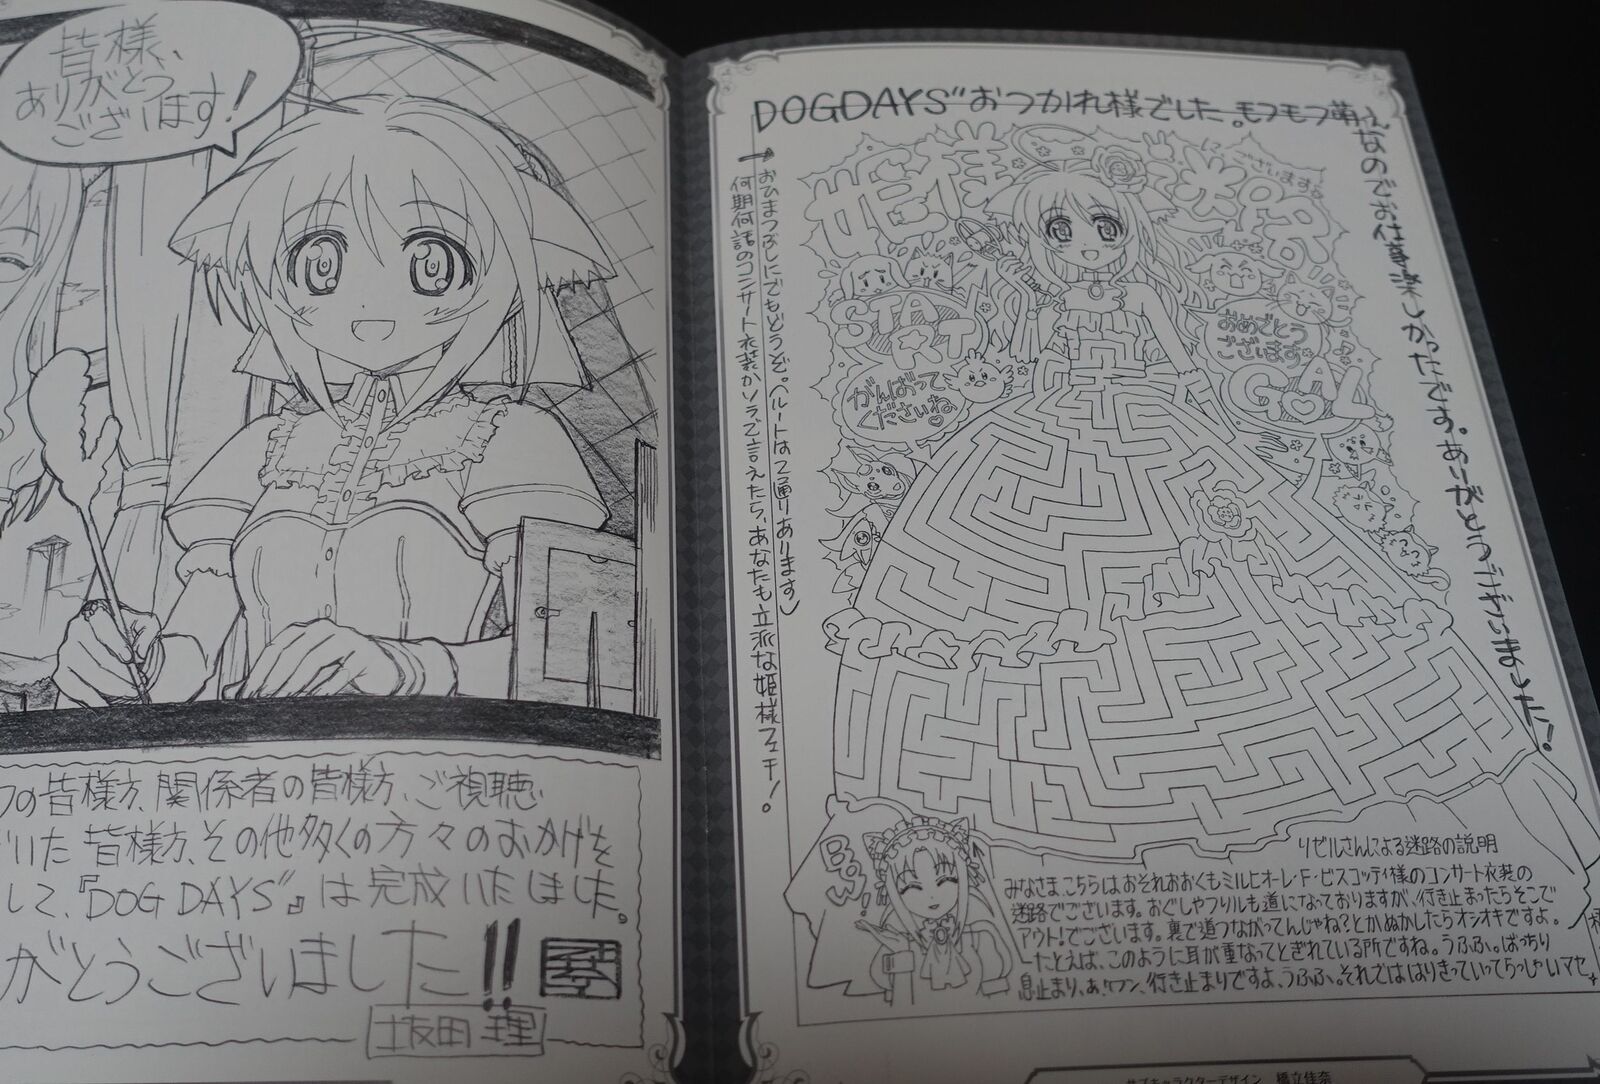 皆様、
ありがとう
ございます!
の皆様方、関係者の皆様方、ご視聴
いた皆様方、その他多くの方々のおかげを
して、『DOG DAYS"』は完成いたしました。
がとうございました!!
坂田 理
DOGDAYS"おつかれ様でした。モフモフ萌え
なのでお仕事楽しかったです。ありがとうございました!
おひまつぶしにでもどうぞ。(ルートは2通りあります)
何期何話のコンサート衣装かソラで言えたら、あなたも立派な姫様フェチ!
姫様
START
がんばって
くださいね♡
おめでとう
ございます
GOAL
BOW!
リゼルさんによる迷路の説明
みなさま、こちらはおそれおおくもミルヒオーレ・F・ビスコッティ様のコンサート衣装の
迷路でございます。おぐしやフリルも道になっておりますが、行き止まったらそこで
アウト!でございます。裏で道つながってんじゃね?とかぬかしたらオシオキですよ。
たとえば、このように耳が重なってとぎれている所ですね。うふふ。ばっちり
息止まり、あ、ワン、行き止まりですよ、うふふ。それでははりきっていってらっしゃいマセ
サブキャラクターデザイン 橋立佳奈